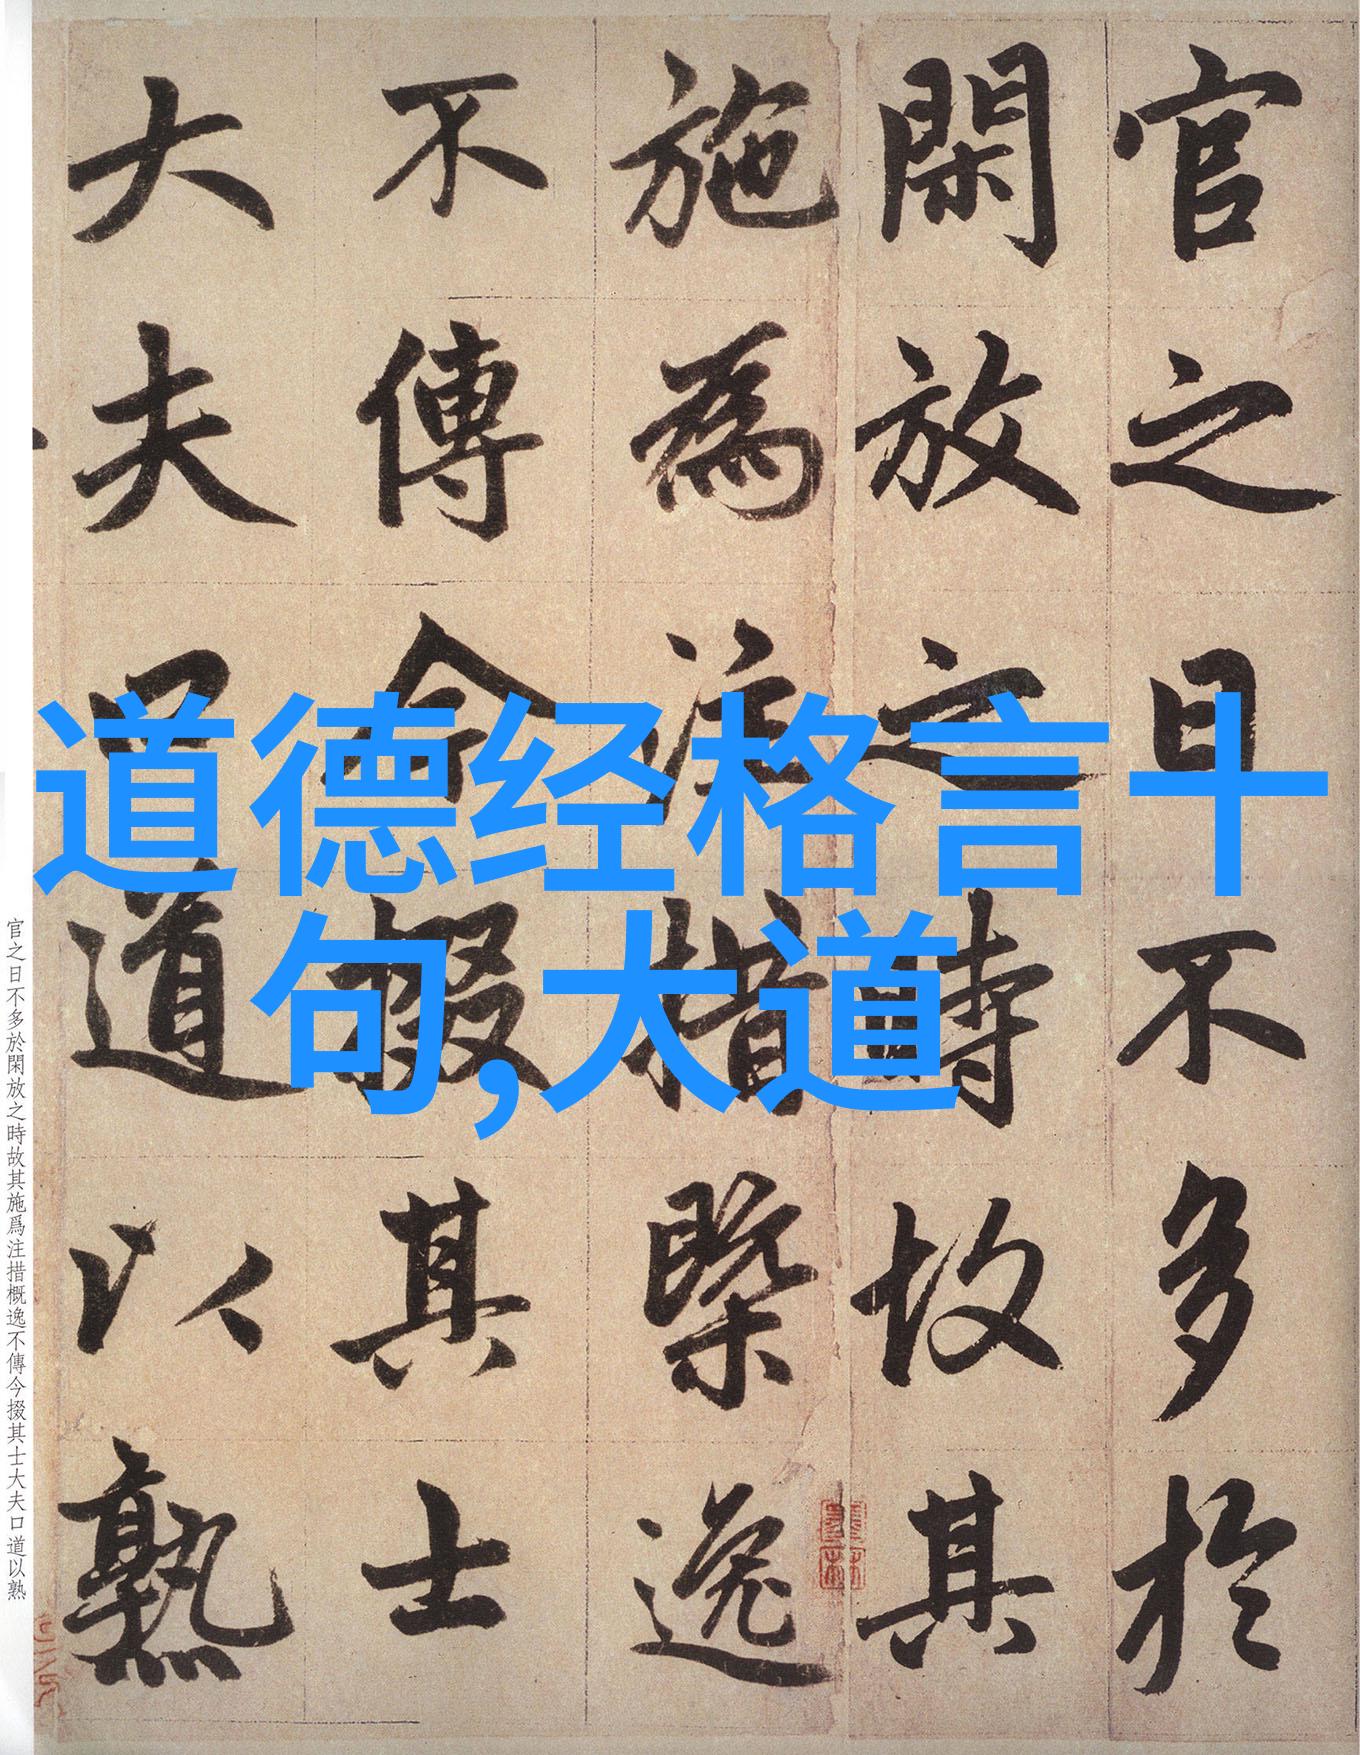 官之日不多於
閑放之時故其
施為注措槩逸
不傳今掇其士
大夫口道以熟
道德经格言十
句,大道
官之日不多於閑放之時故其施爲注措概逸不傳今掇其士大夫口道以熟